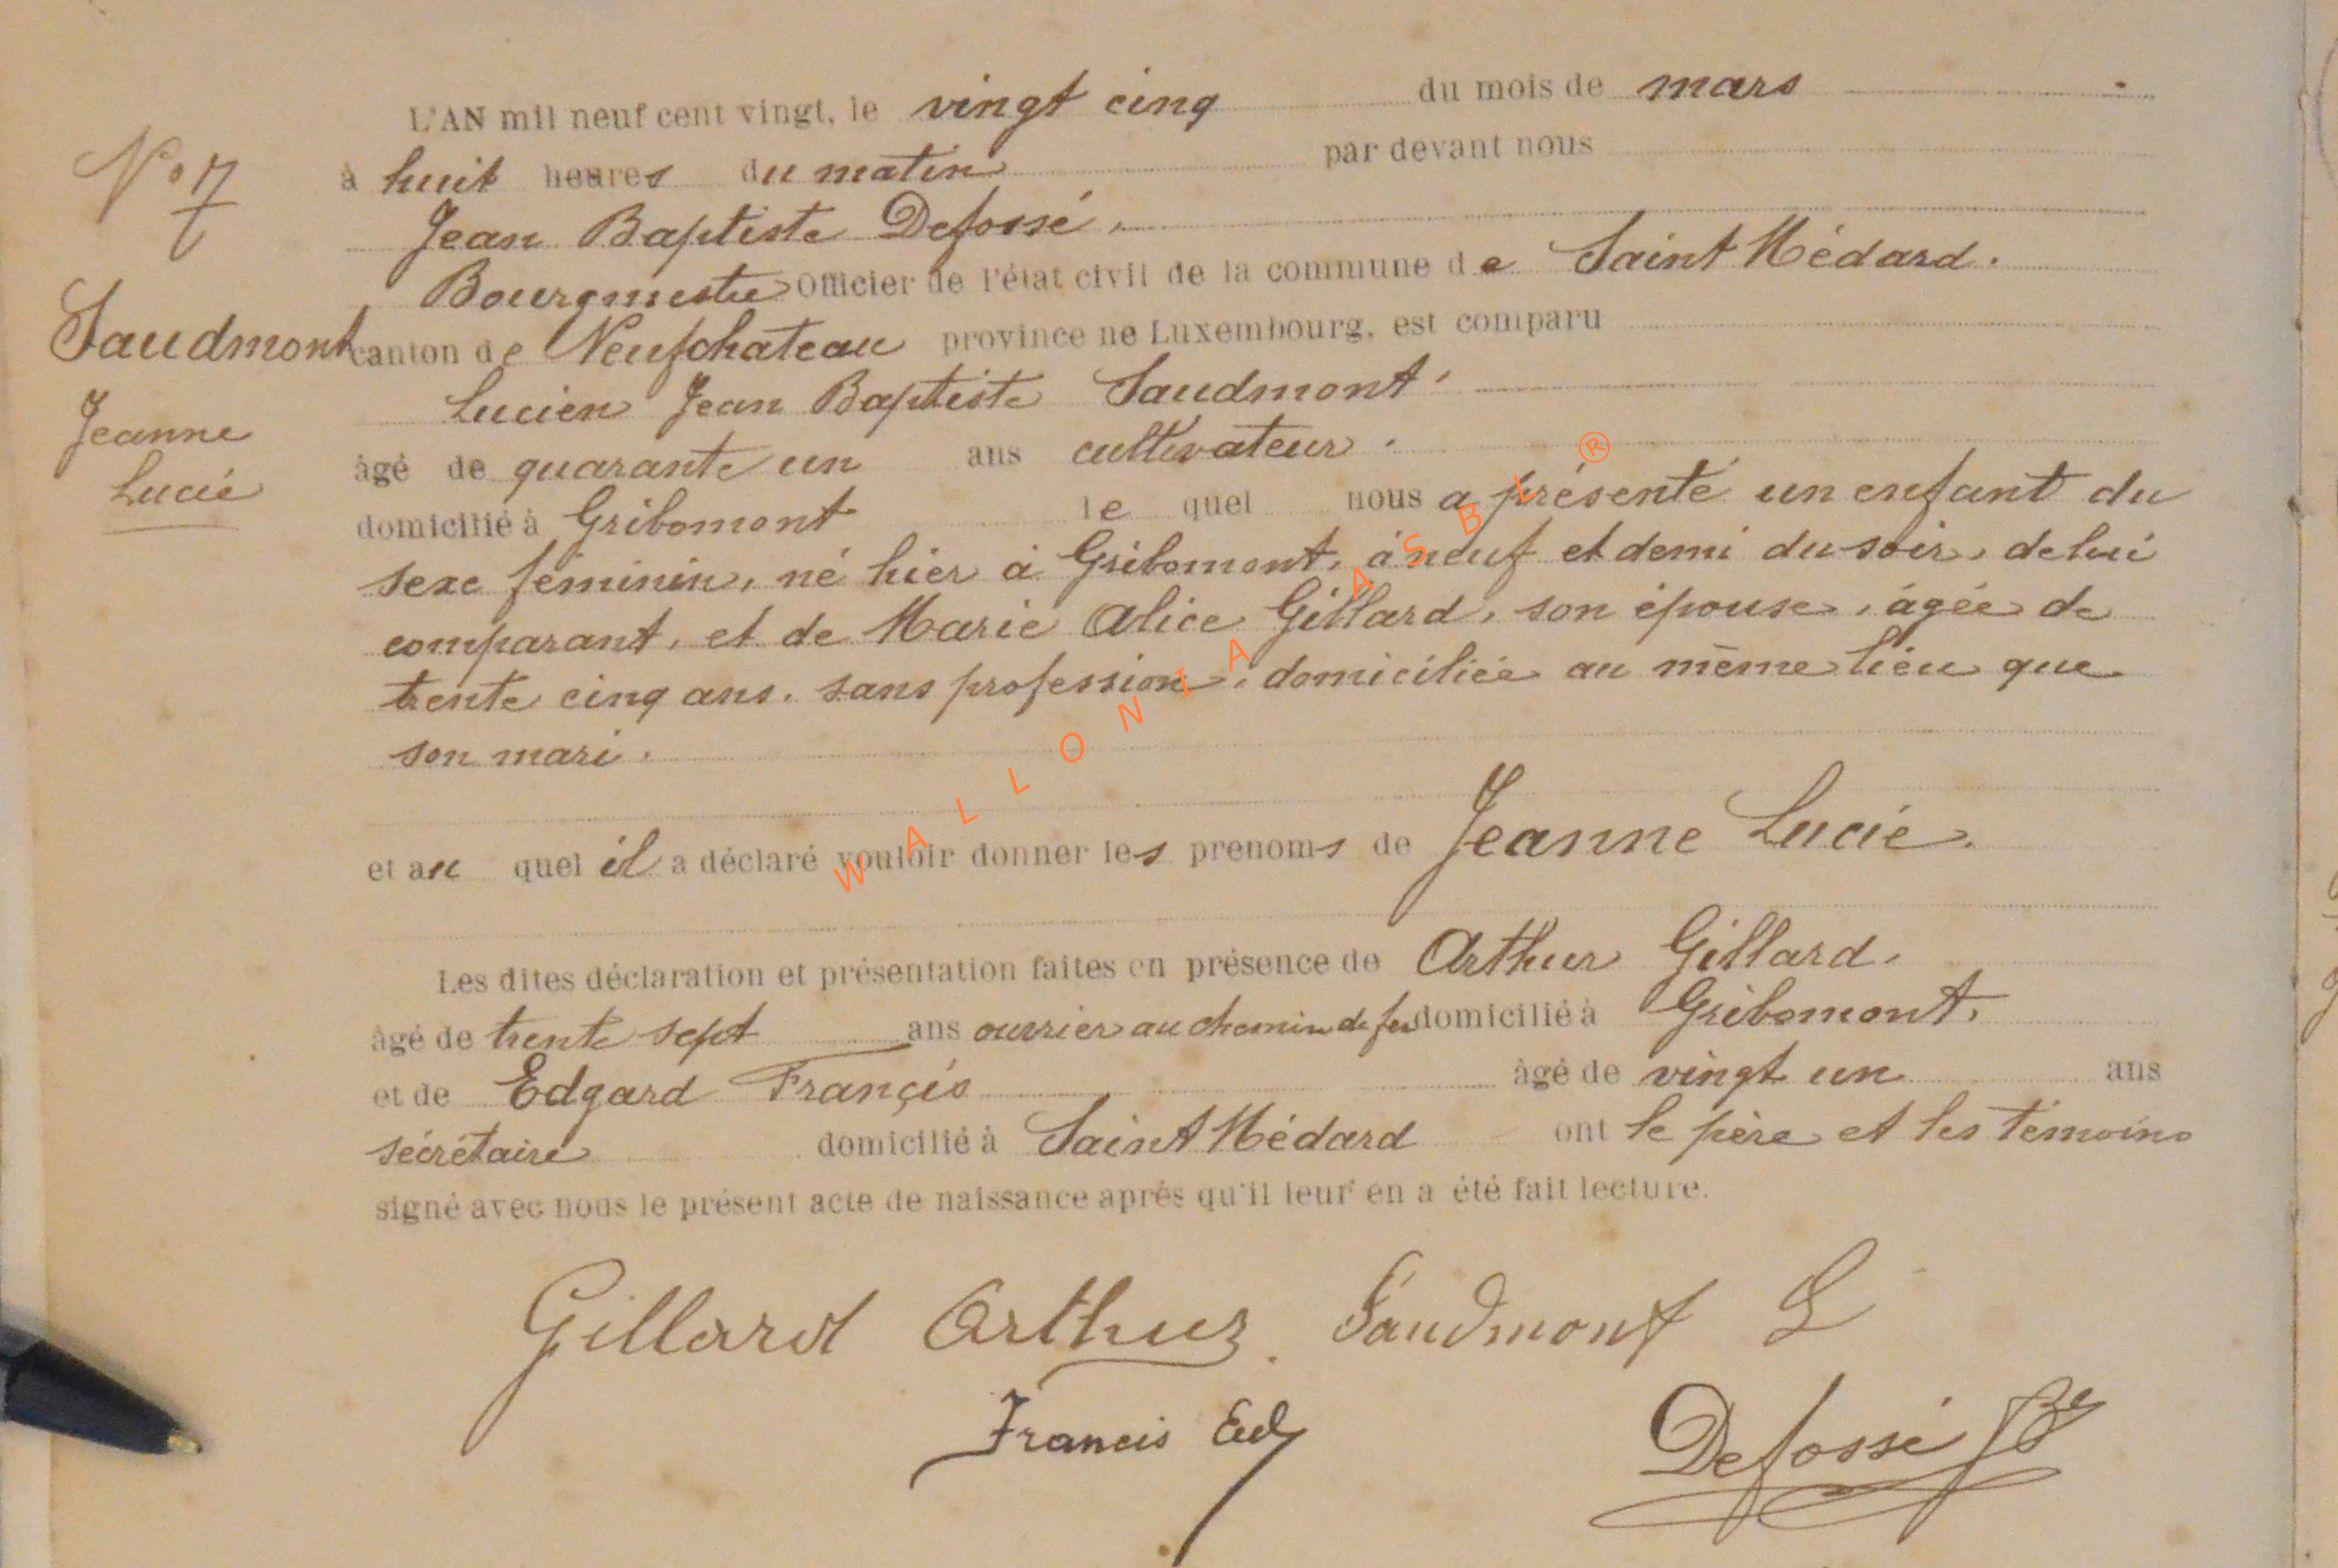 L'AN mil neuf cent vingt, le vingt cinq du mois de mars
N° 7
à huit heures du matin par devant nous
Jean Baptiste Defossé,
Bourgmestre Officier de l'état civil de la commune de Saint Médard.
Saudmont
canton de Neufchateau province de Luxembourg, est comparu
Lucien Jean Baptiste Saudmont,
Jeanne
âgé de quarante un ans cultivateur.
Lucie
domicilié à Gribomont le quel nous a présenté un enfant du
sexe féminin, né hier à Gribomont, à neuf et demi du soir, de lui
comparant, et de Marie Alice Gillard, son épouse, âgée de
trente cinq ans, sans profession, domiciliée au même lieu que
son mari.
et au quel il a déclaré vouloir donner les prenoms de Jeanne Lucie.
Les dites déclaration et présentation faites en présence de Arthur Gillard,
âgé de trente sept ans ouvrier au chemin de fer domicilié à Gribomont,
et de Edgard Françis âgé de vingt un ans
sécrétaire domicilié à Saint Médard ont le père et les témoins
signé avec nous le présent acte de naissance après qu'il leur en a été fait lecture.
Gillard Arthur. Saudmont L
Francis Ed
Defossé JB
WALLONIA ASBL ®